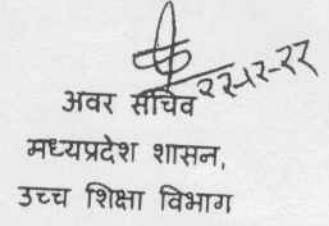 अवर सचिव
मध्यप्रदेश शासन,
उच्च शिक्षा विभाग